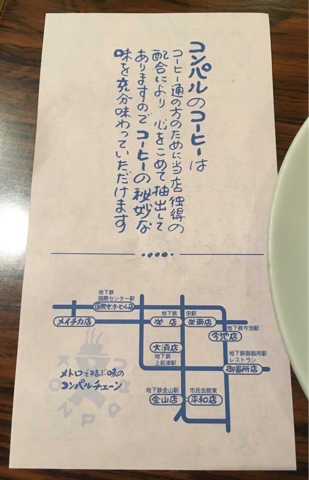 コンパルのコーヒーは
コーヒー通の方のために当店独得の
配合により 心をこめて抽出して
ありますので コーヒーの秘妙な
味を充分味わっていただけます
地下鉄
国際センター駅
国際センタービル店
メイチカ店
地下鉄
栄店
栄駅
栄西店
地下鉄今池駅
今池店
大須店
地下鉄
上前津駅
地下鉄御器所駅
レストラン
御器所店
メトロで結ぶ味の
コンパルチェーン
地下鉄金山駅
金山店
市民会館東
平和店